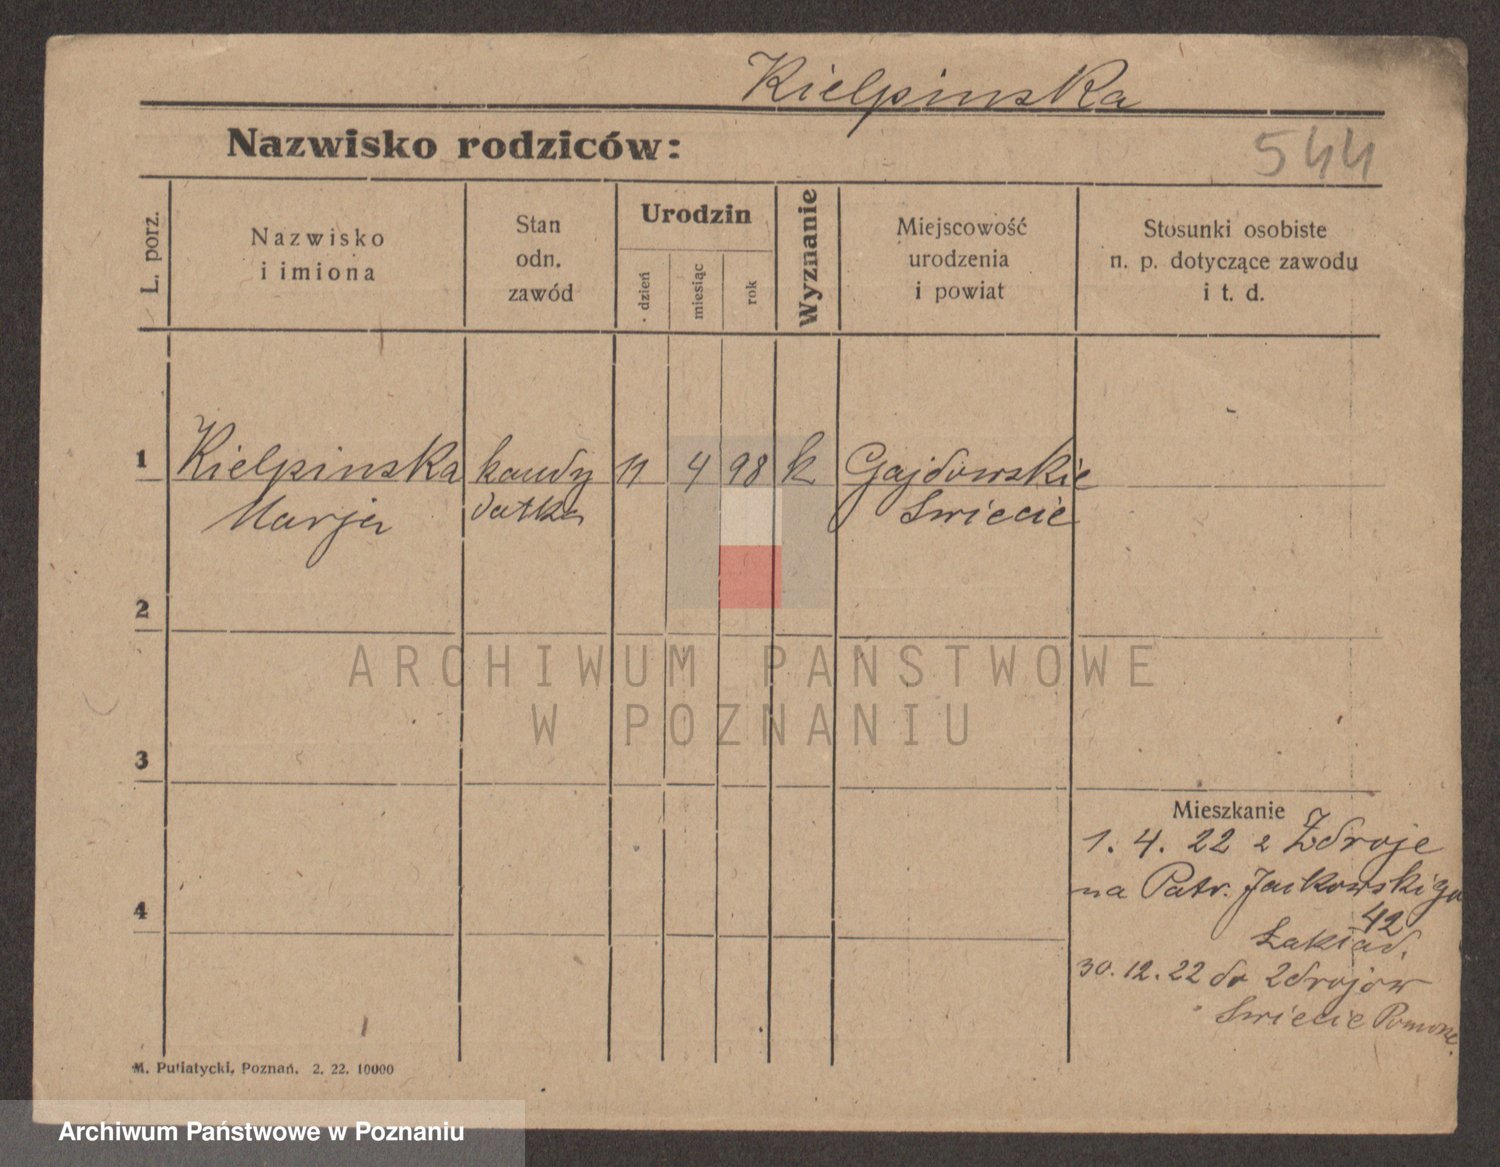 Kielpinska
Nazwisko rodziców:
544
L. porz.
Nazwisko
i imiona
Stan
odn.
zawód
Urodzin
dzień
miesiąc
rok
Wyznanie
Miejscowość
urodzenia
i powiat
Stosunki osobiste
n. p. dotyczące zawodu
i t. d.
1
Kielpinska
Marja
kandy
datka
11
4
98
k
Gajdowskie
Swiecie
2
ARCHIWUM PAŃSTWOWE
W POZNANIU
3
Mieszkanie
1. 4. 22 z Zdroje
na Patr. Jackowskiego
42
Zakład.
4
30. 12. 22 do Zdrojów
Swiecie Pomorze.
M. Putiatycki, Poznań. 2. 22. 10000
Archiwum Państwowe w Poznaniu